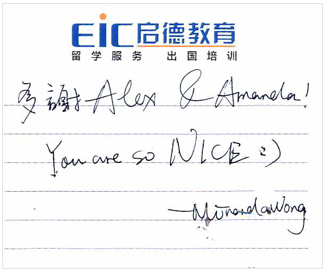 EIC启德教育
留学服务 出国培训
多謝 Alex & Amanda!
You are so NICE :)
—Miranda Wong